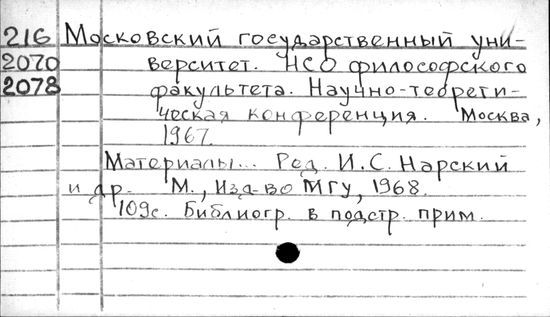 216 Московский государственный уни-
2070 верситет. НСО философского
2078 факультета. Научно-теорети-
ческая конференция. Москва,
1967.
Материалы... Ред. И.С. Нарский
и др. М., Изд-во МГУ, 1968.
109с. Библиогр. в подстр. прим.